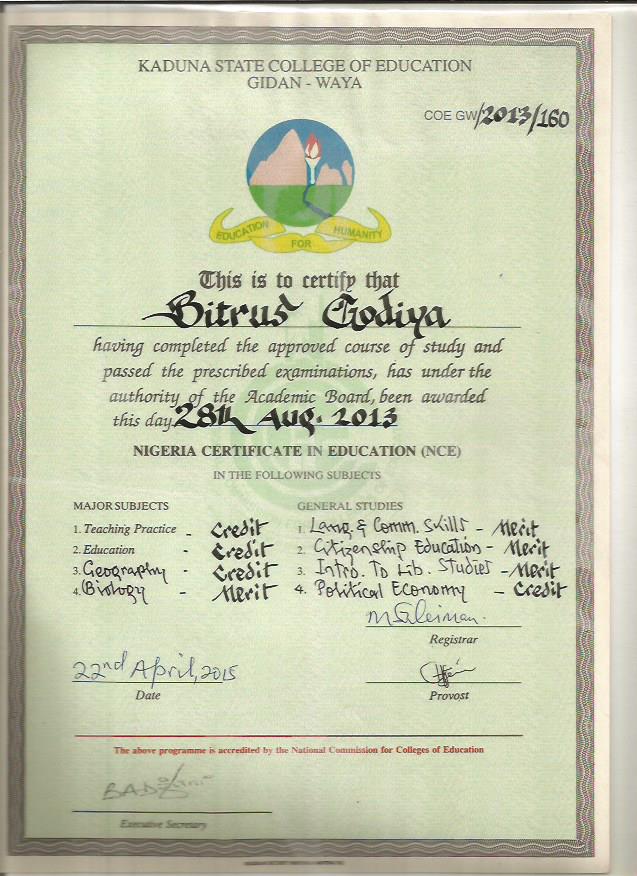 KADUNA STATE COLLEGE OF EDUCATION
GIDAN - WAYA
COE GW/2013/160
EDUCATION FOR HUMANITY
This is to certify that
Bitrus Godiya
having completed the approved course of study and
passed the prescribed examinations, has under the
authority of the Academic Board, been awarded
this day 28th Aug. 2013
NIGERIA CERTIFICATE IN EDUCATION (NCE)
IN THE FOLLOWING SUBJECTS
MAJOR SUBJECTS
1. Teaching Practice - Credit
2. Education - Credit
3. Geography - Credit
4. Biology - Merit
GENERAL STUDIES
1. Lang & Comm. Skills - Merit
2. Citizenship Education - Merit
3. Intro. To Lib. Studies - Merit
4. Political Economy - Credit
Registrar
22nd April, 2015
Date
Provost
The above programme is accredited by the National Commission for Colleges of Education
Executive Secretary